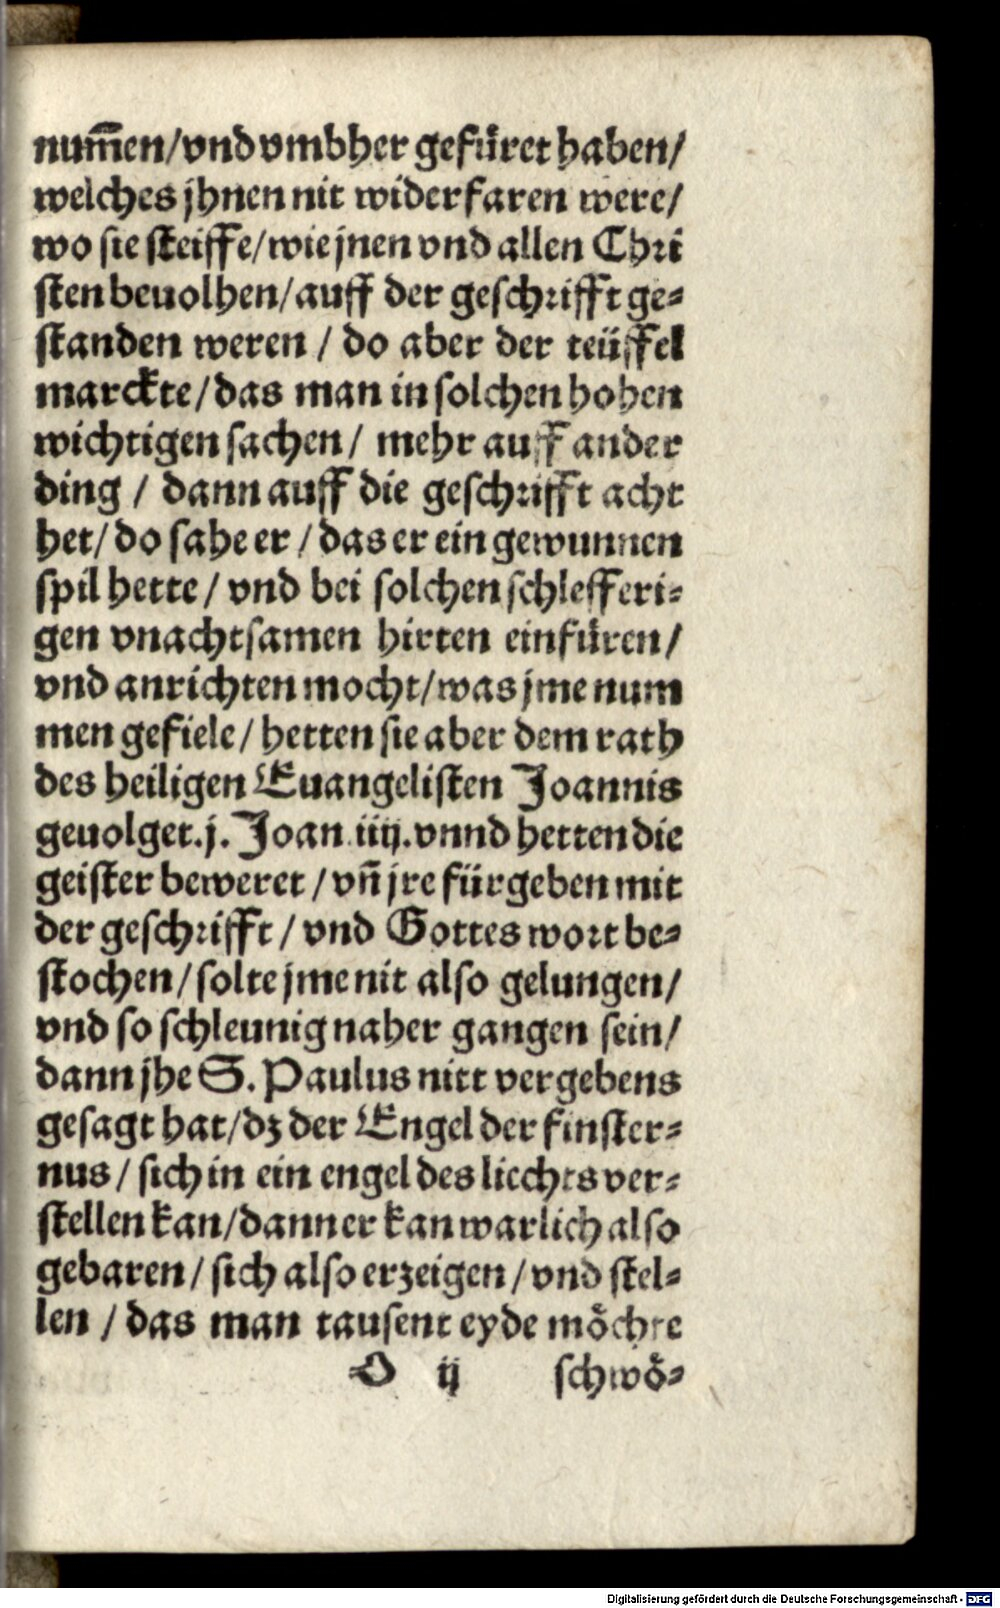 num̄en/vnd vmbher gefüret haben/
welches jhnen nit widerfaren were/
wo sie steiffe/wie jnen vnd allen Chri
sten beuolhen/auff der geschrifft ge⸗
standen weren / do aber der teüffel
marckte/das man in solchen hohen
wichtigen sachen/ mehr auff ander
ding / dann auff die geschrifft acht
het/ do sahe er / das er ein gewunnen
spil hette / vnd bei solchen schlefferi⸗
gen vnachtsamen hirten einfüren/
vnd anrichten mocht/was jme num
men gefiele / hetten sie aber dem rath
des heiligen Euangelisten Joannis
geuolget.j. Joan.iiij.vnnd hetten die
geister beweret / vn̄ jre fürgeben mit
der geschrifft / vnd Gottes wort be⸗
stochen/solte jme nit also gelungen/
vnd so schleunig naher gangen sein/
dann jhe S. Paulus nitt vergebens
gesagt hat/dz der Engel der finster⸗
nus / sich in ein engel des liechts ver⸗
stellen kan/dann er kan warlich also
gebaren / sich also erzeigen / vnd stel⸗
len / das man tausent eyde möchte
O ij schwö⸗
Digitalisierung gefördert durch die Deutsche Forschungsgemeinschaft - DFG